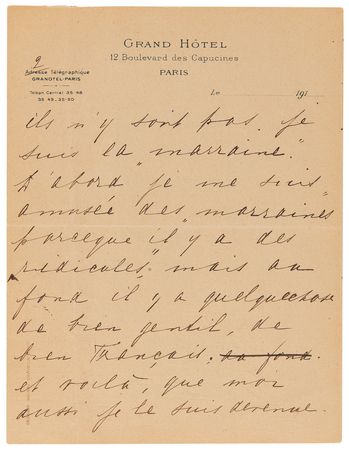 GRAND HÔTEL
12 Boulevard des Capucines
PARIS
2
Adresse Télégraphique
GRANOTEL-PARIS
Téléph. Central 35-48
35-49_35-50
Le 191
ils n'y sont pas. Je
suis la "marraine".
D'abord je me suis
amusée des "marraines"
parceque il y a des
ridicules, mais au
fond il y a quelquechose
de bien gentil, de
bien Français, au fond.
et voilà, que moi
aussi je le suis devenue.